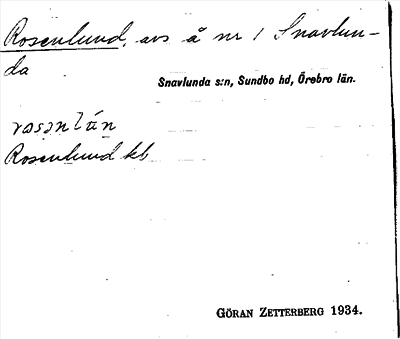 Rosenlund, avs å nr 1 Snavlun-
da
Snavlunda s:n, Sundbo hd, Örebro län.
Rosenlund kb
GÖRAN ZETTERBERG 1934.